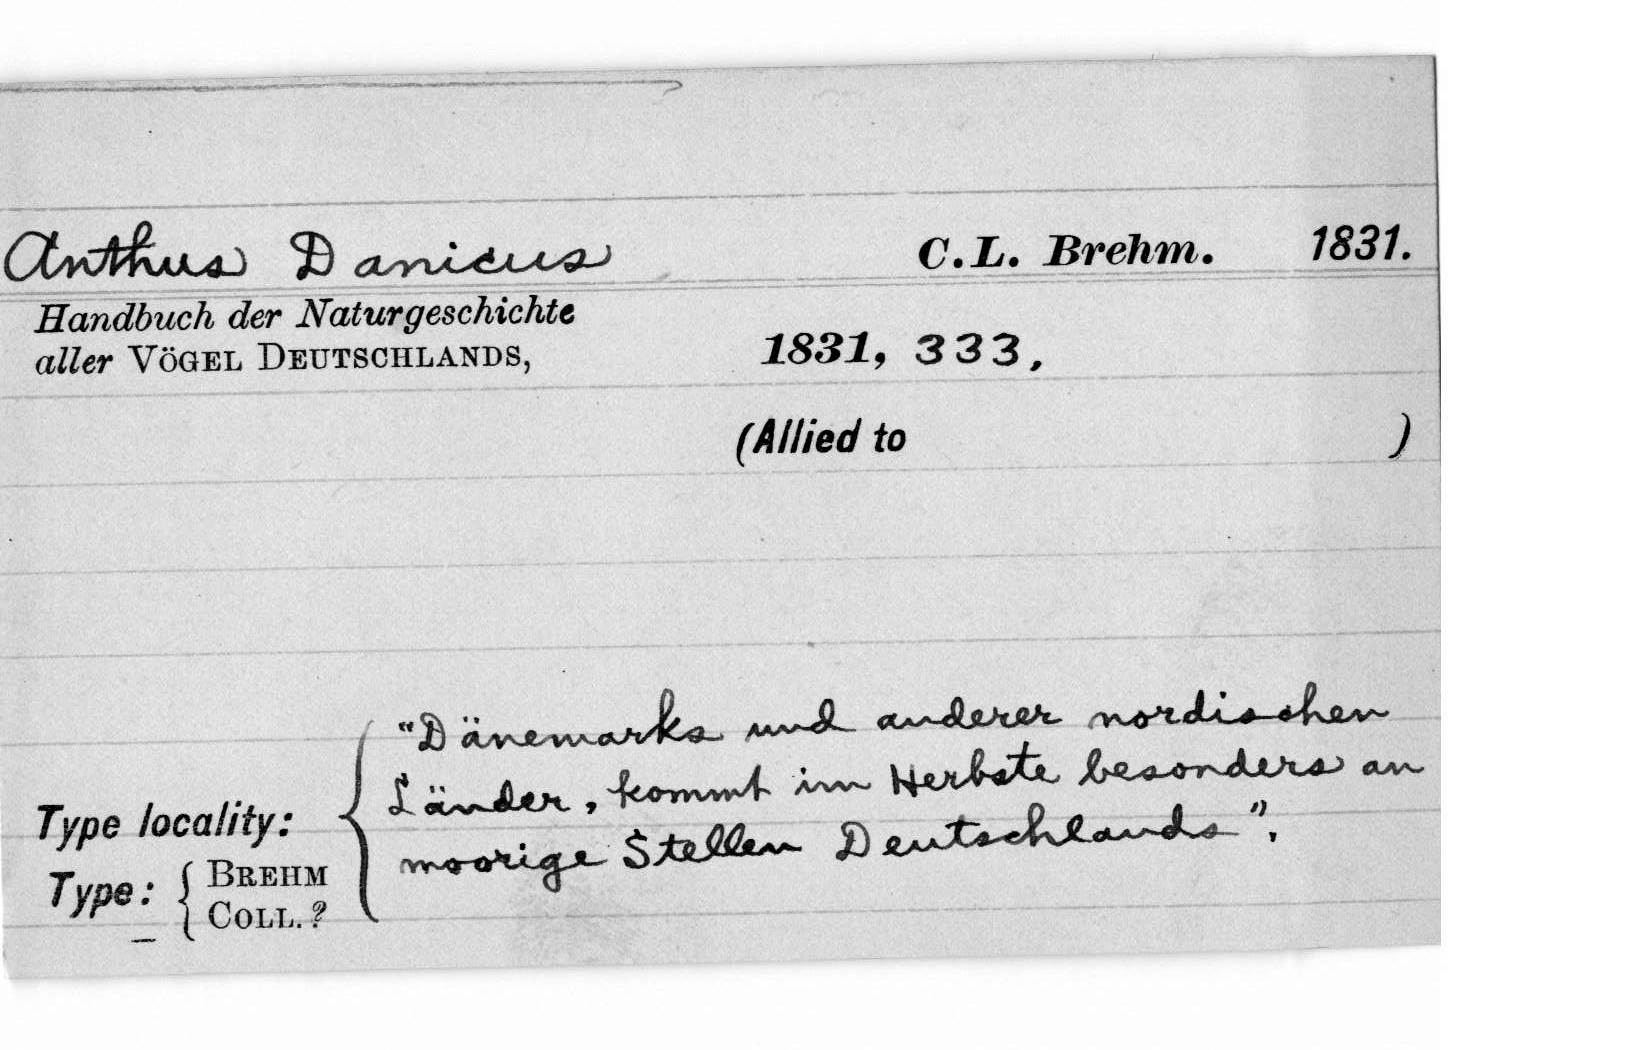 Anthus Danicus C.L. Brehm. 1831.
Handbuch der Naturgeschichte
aller VÖGEL DEUTSCHLANDS, 1831, 333,
(Allied to )
"Dänemarks und anderer nordischen
Länder, kommt im Herbste besonders an
moorige Stellen Deutschlands".
Type locality:
Type: BREHM
COLL.?